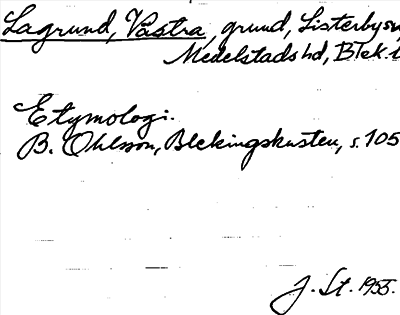 Lagrund, Västra, grund, Listerbysn,
Medelstads hd, Blek. l
Etymologi.
B. Ohlsson, Blekingskusten, s. 105
J. St. 1955.